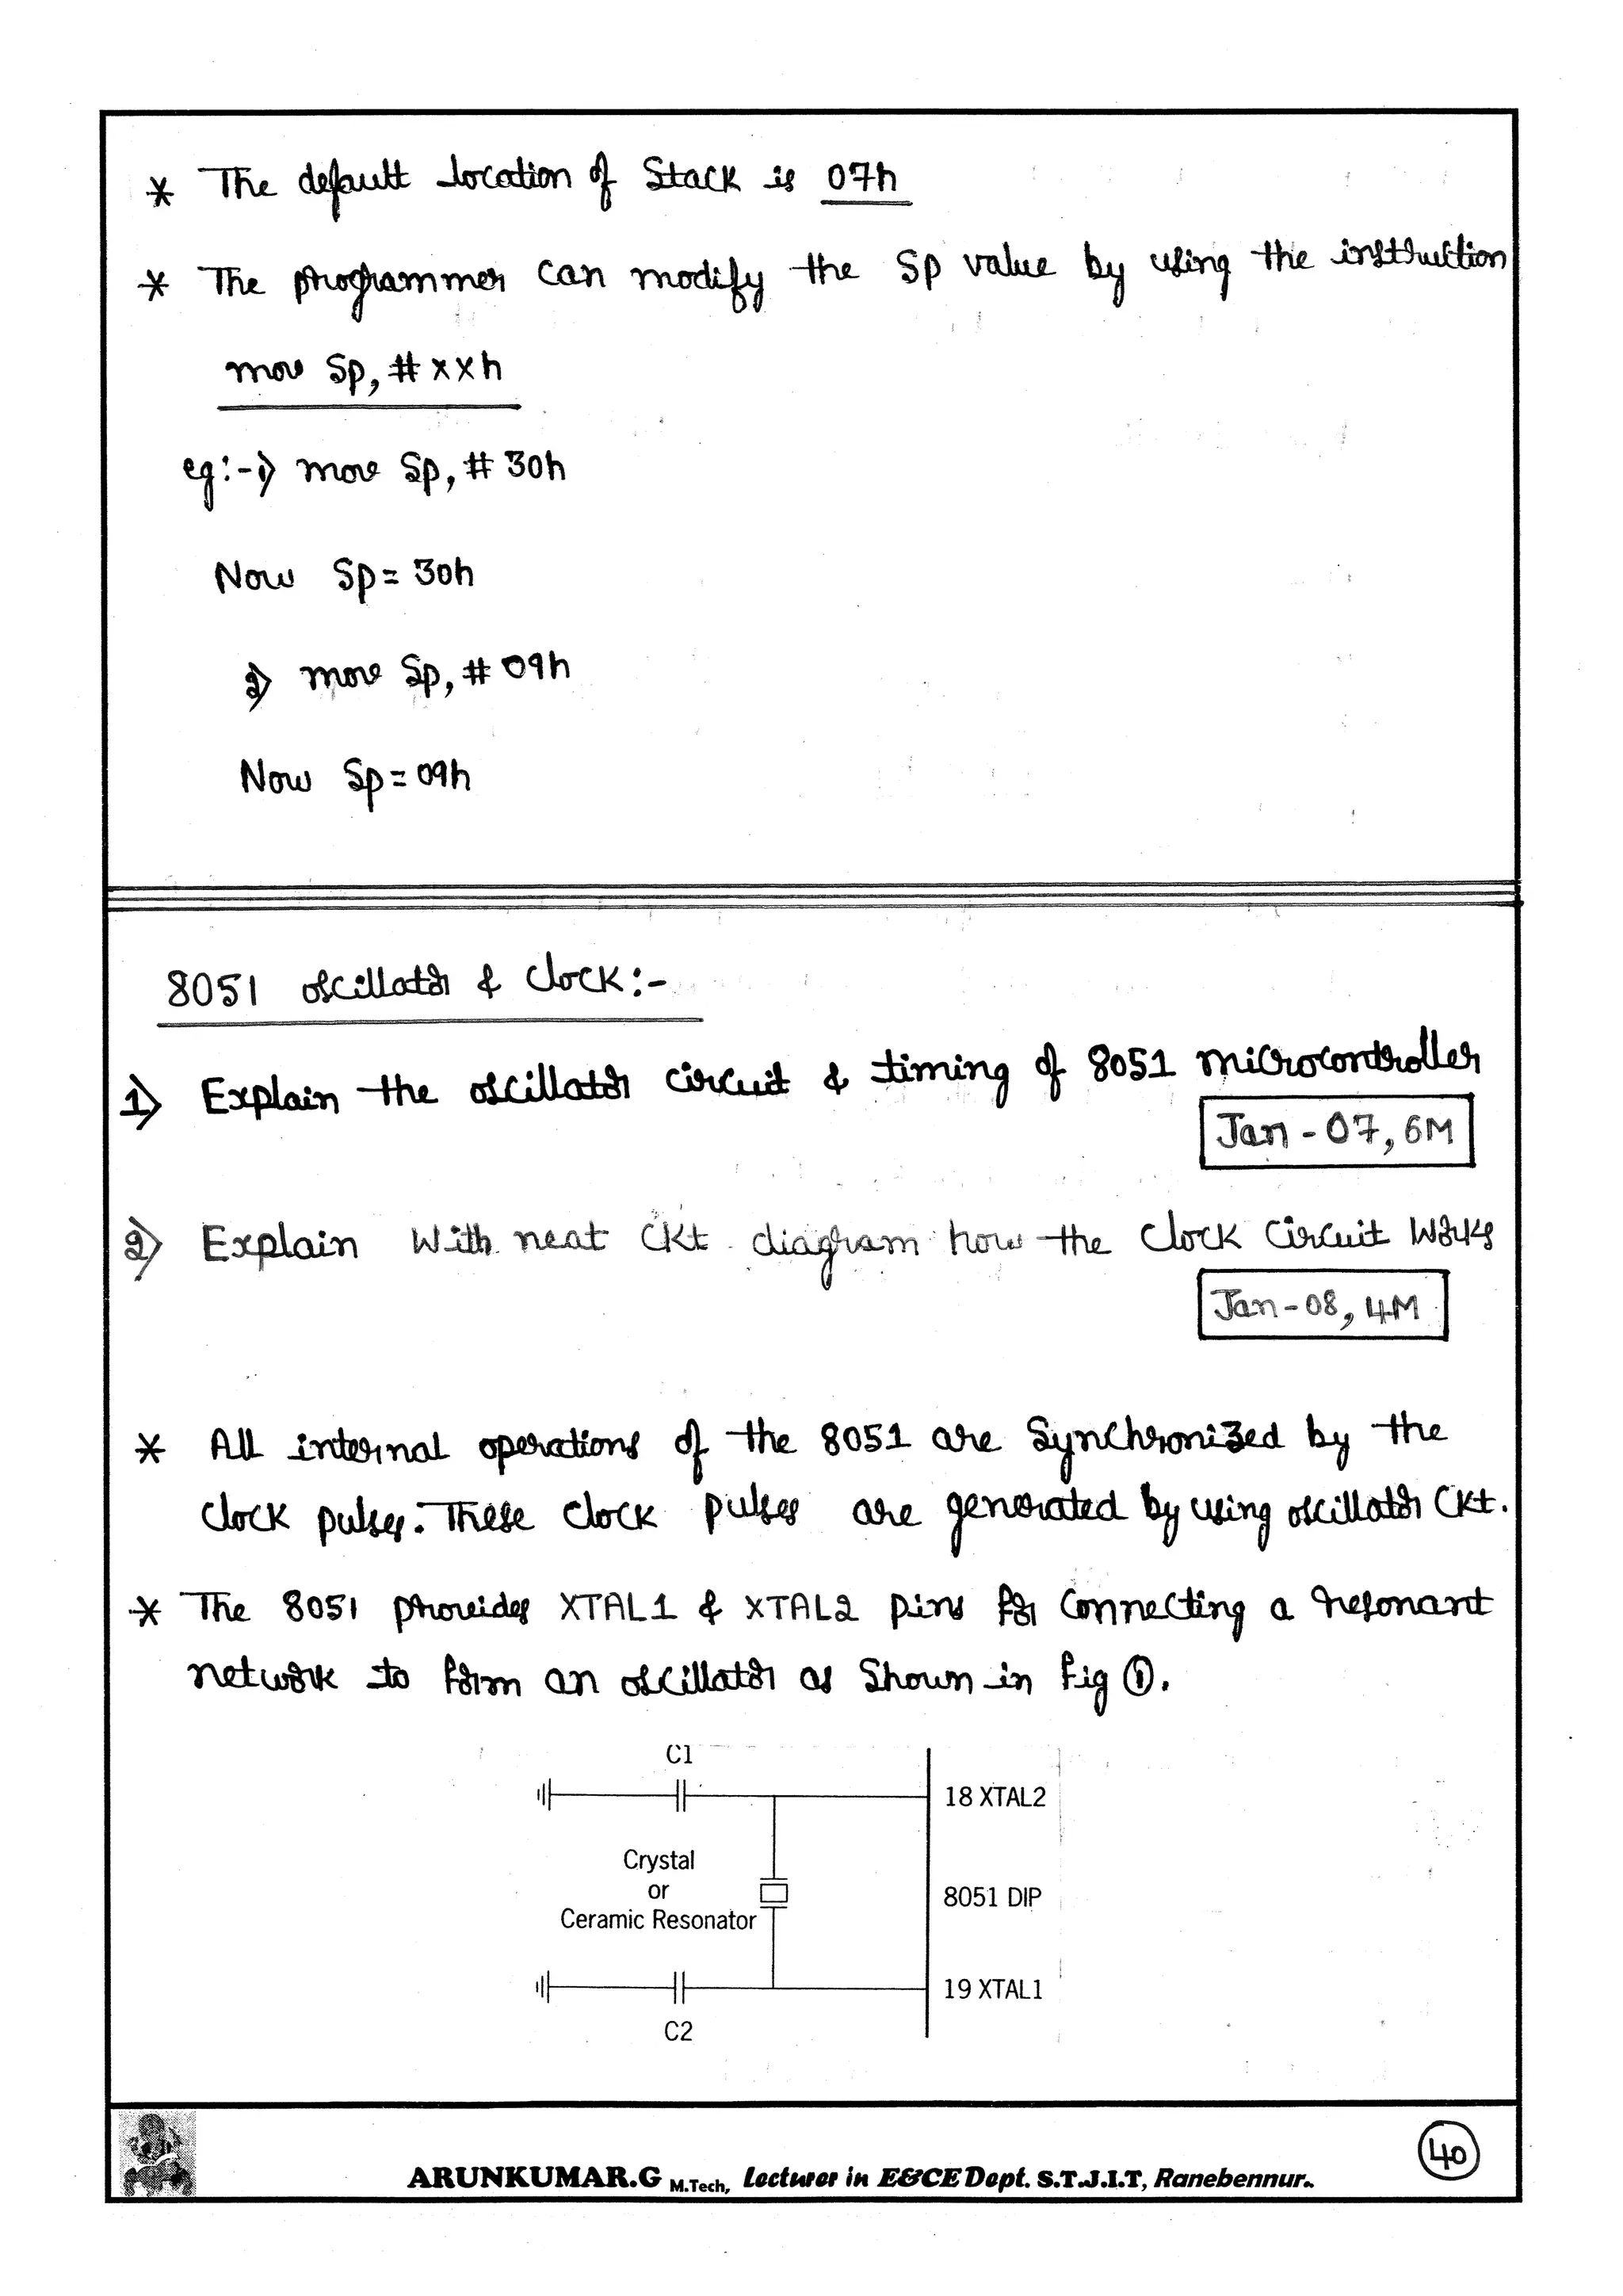 * The default location of Stack is 07h
* The programmer can modify the SP value by using the instruction
mov SP, # xxh
eg:- 1) mov SP, # 30h
Now SP = 30h
2) mov SP, # 09h
Now SP = 09h
8051 oscillator & clock:-
1) Explain the oscillator circuit & timing of 8051 microcontroller
Jan - 07, 6M
2) Explain With neat CKt diagram how the clock circuit works
Jan - 08, 4M
* All internal operations of the 8051 are Synchronized by the
clock pulses. These clock pulses are generated by using oscillator CKt.
* The 8051 provides XTAL1 & XTAL2 pins for connecting a resonant
network to form an oscillator as Shown in fig ①.
C1
18 XTAL2
Crystal
or
Ceramic Resonator
8051 DIP
19 XTAL1
C2
40
ARUNKUMAR.G M.Tech, Lecturer in E&CE Dept. S.T.J.I.T, Ranebennur.